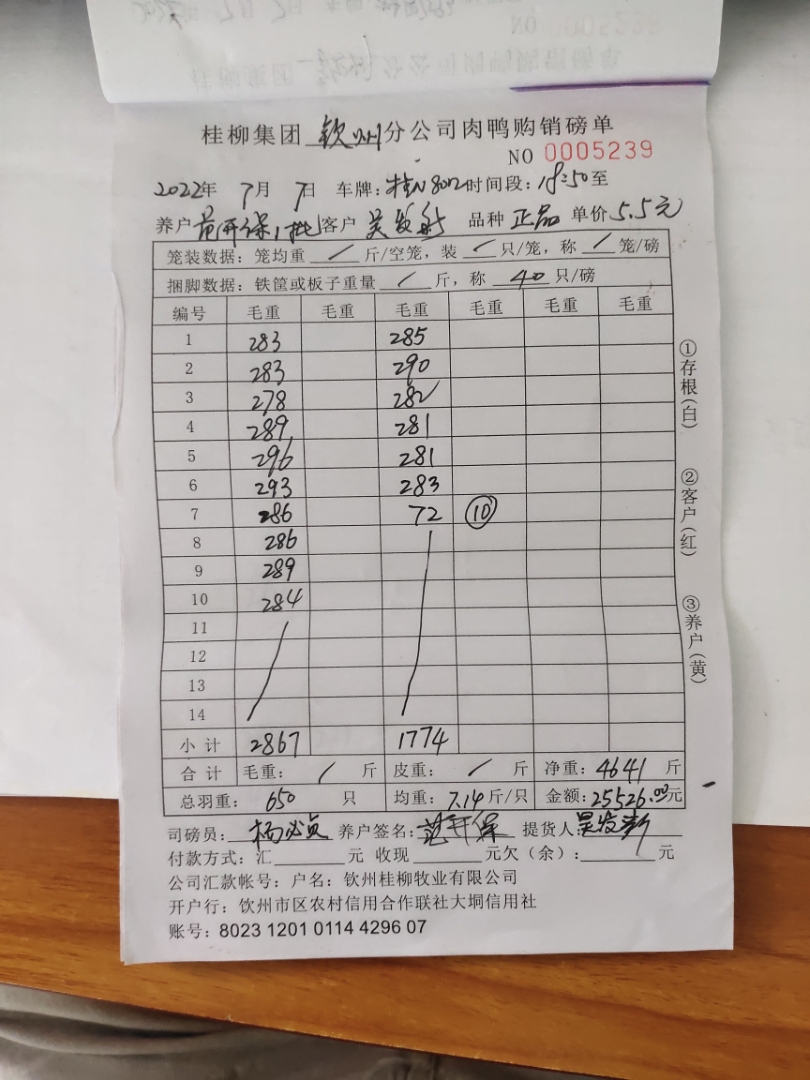 桂柳集团 钦州 分公司肉鸭购销磅单
NO 0005239
2022年 7月 7日 车牌: 桂N8012 时间段: 18:50至
养户 范开保 1批 客户 吴发新 品种 正品 单价 5.5元
笼装数据: 笼均重 / 斤/空笼, 装 / 只/笼, 称 / 笼/磅
捆脚数据: 铁筐或板子重量 / 斤, 称 40 只/磅
编号 毛重 毛重 毛重 毛重 毛重 毛重
1 283 285
2 283 290
3 278 282
4 289 281
5 296 281
6 293 283
7 286 72 10
8 286
9 289
10 284
11
12
13
14
小计 2867 1774
合计 毛重: / 斤 皮重: / 斤 净重: 4641 斤
总羽重: 650 只 均重: 7.14 斤/只 金额: 25526.00元
司磅员: 养户签名: 范开保 提货人: 吴发新
付款方式: 汇 元 收现 元欠(余): 元
公司汇款帐号: 户名: 钦州桂柳牧业有限公司
开户行: 钦州市区农村信用合作联社大垌信用社
账号: 8023 1201 0114 4296 07
①存根(白)
②客户(红)
③养户(黄)